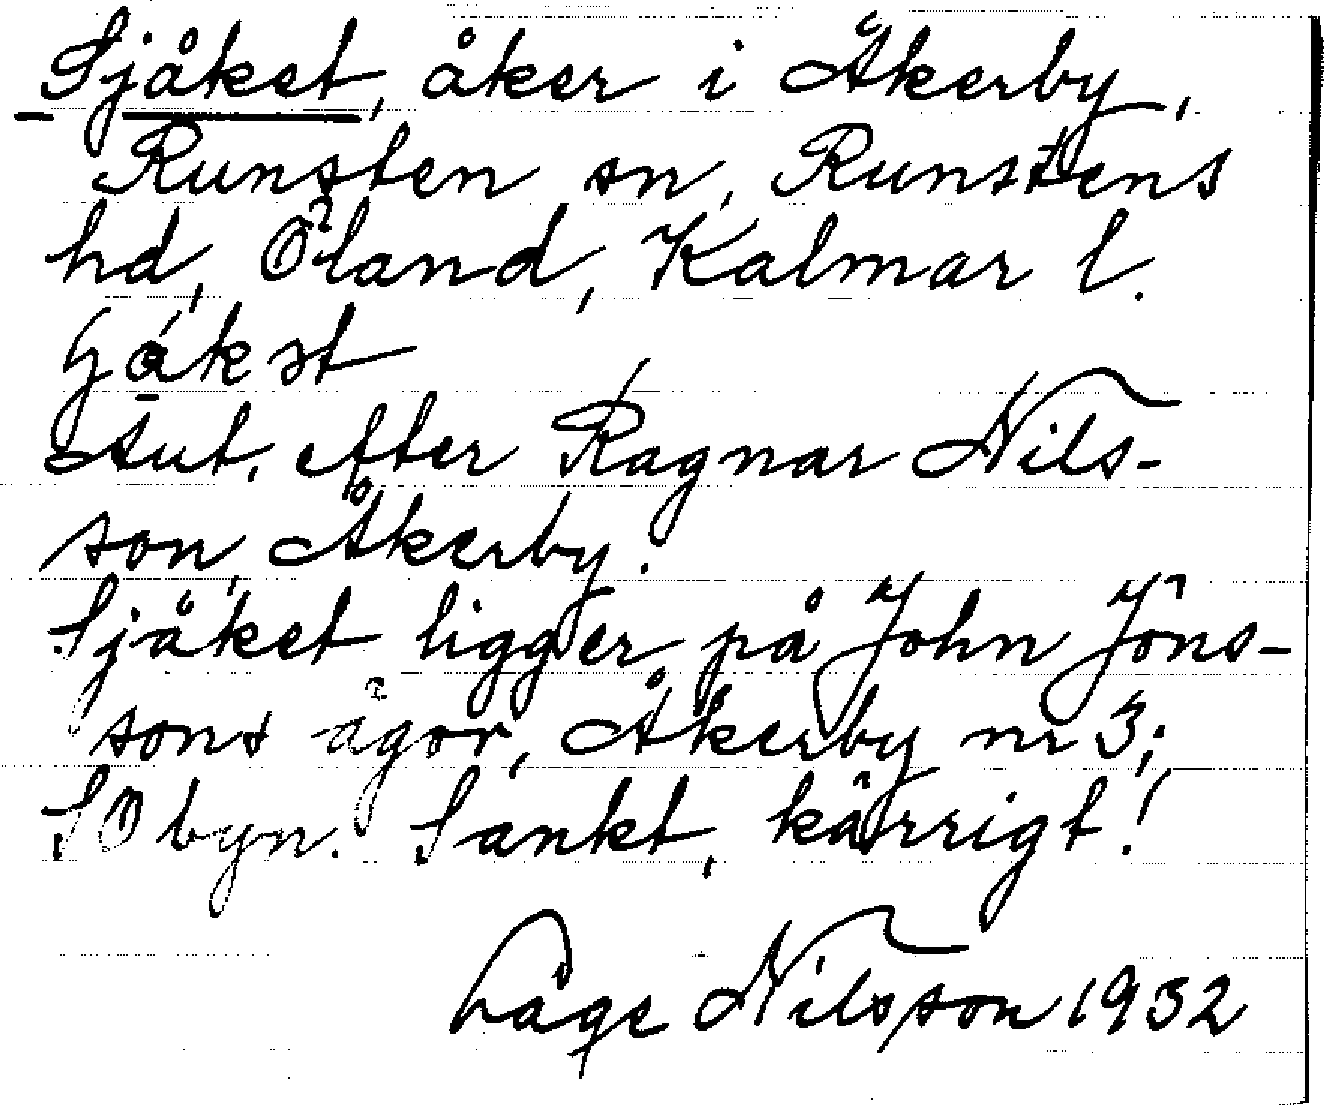 Sjåket, åker i Åkerby,
Runsten sn, Runstens
hd, Öland, Kalmar l.
Ant. efter Ragnar Nils-
son, Åkerby.
Sjåket ligger på John Jöns-
sons ägor, Åkerby nr 3;
SO byn. Sankt, kärrigt!
Låge Nilsson 1932